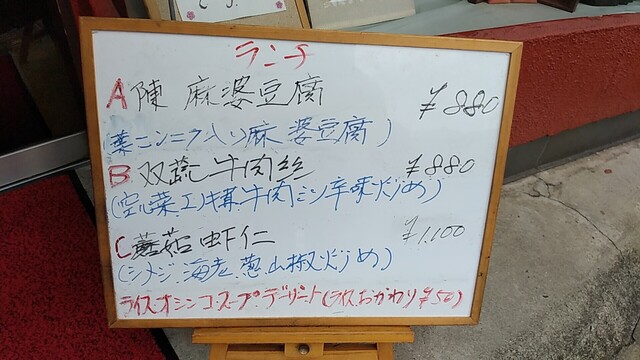 ランチ
A 陳 麻婆豆腐 ¥880
(葉ニンニク入り麻婆豆腐)
B 双蔬牛肉丝 ¥880
(空心菜 エノキ 牛肉ミン辛味炒め)
C 蘑菇虾仁 ¥1,100
(シメジ 海老 葱山椒炒め)
ライス.オシンコ.スープ.デザート(ライスおかわり¥50)